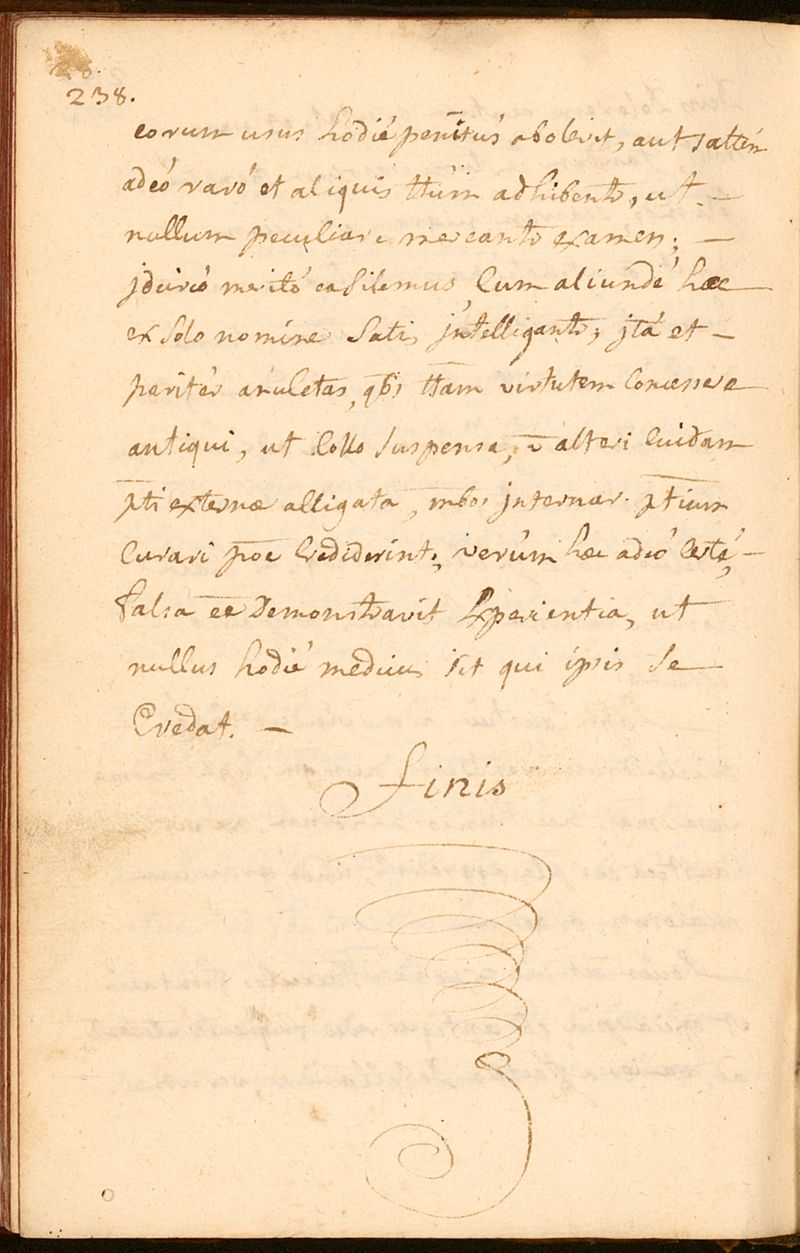 238.
eorum usus hodié penitús abolevit, aut saltém
adeó raró et aliquis ttūm adhibentr, ut —
nullum peculiare mereantr examen; —
jdcircó meritó ea silemus, Cum aliundé hæc
ex solo nomine satis jntelligantr; jtá et —
paritér amuletas, qbs ttam virtutem Concessere
antiqui, ut Collo suspensa, alteri Cuidam
pti externæ alligata, mbos jnternar. ptium
Curari poe Crediderint; verúm hæc adeó Certé, —
falsa ee Demonstravit Experientia, ut
nullus hodié medicus sit qui ipsis se
Credat. —
Finis